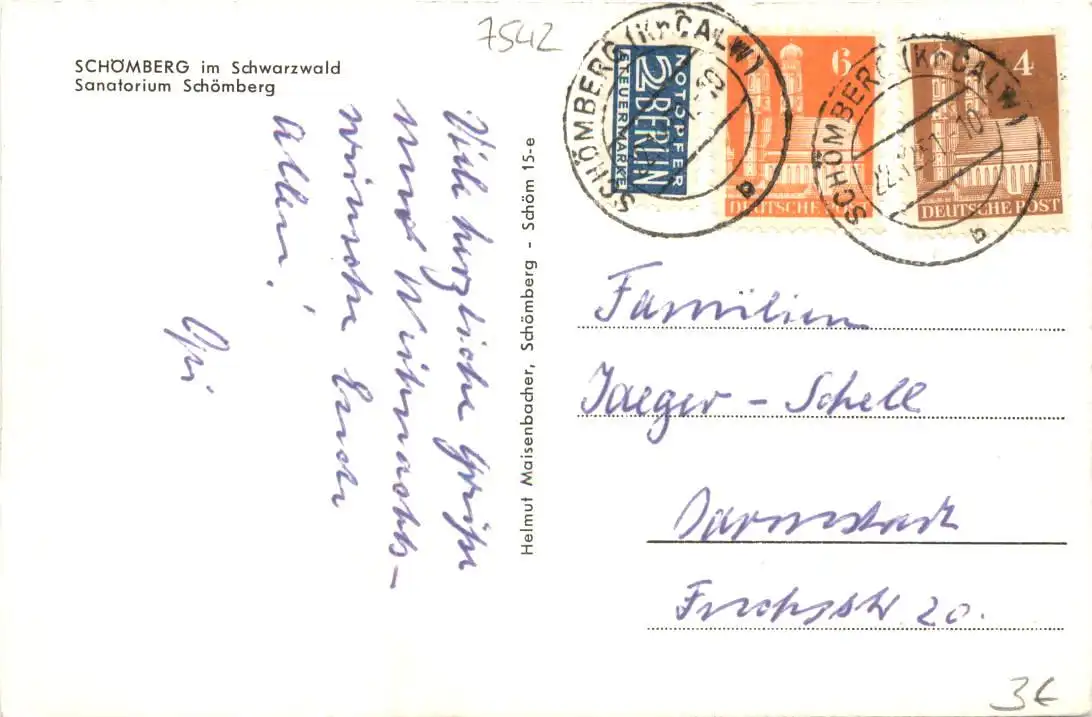 7542
SCHÖMBERG im Schwarzwald
Sanatorium Schömberg
Viele herzliche Grüße
und Weihnachts-
wünsche Euch
Allen!
Helmut Maisenbacher, Schömberg - Schöm 15-e
NOTOPFER
2 BERLIN
STEUERMARKE
6
DEUTSCHE POST
4
DEUTSCHE POST
SCHÖMBERG (Kr. CALW)
b
SCHÖMBERG (Kr. CALW)
22.12.51.-10
b
Familien
Jaeger - Schell
Darmstadt
20.
3€